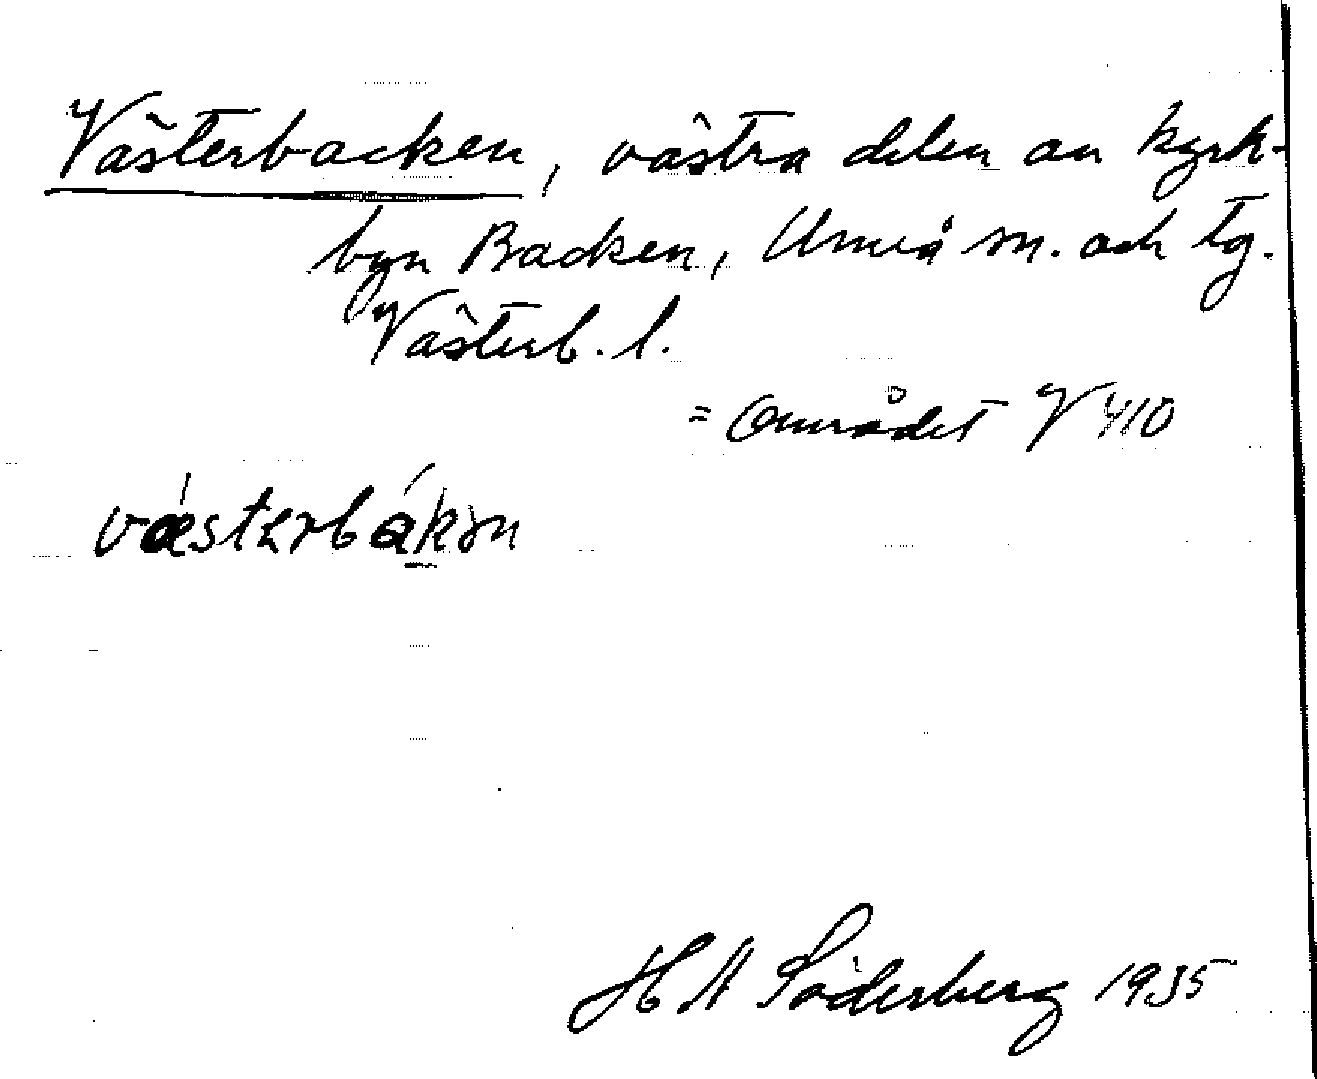 Västerbacken, västra delen av kyrk-
byn Backen, Umeå sn. och tg.
Västerb. l.
= området V 410
vǽsterbákən
H A Söderberg 1935